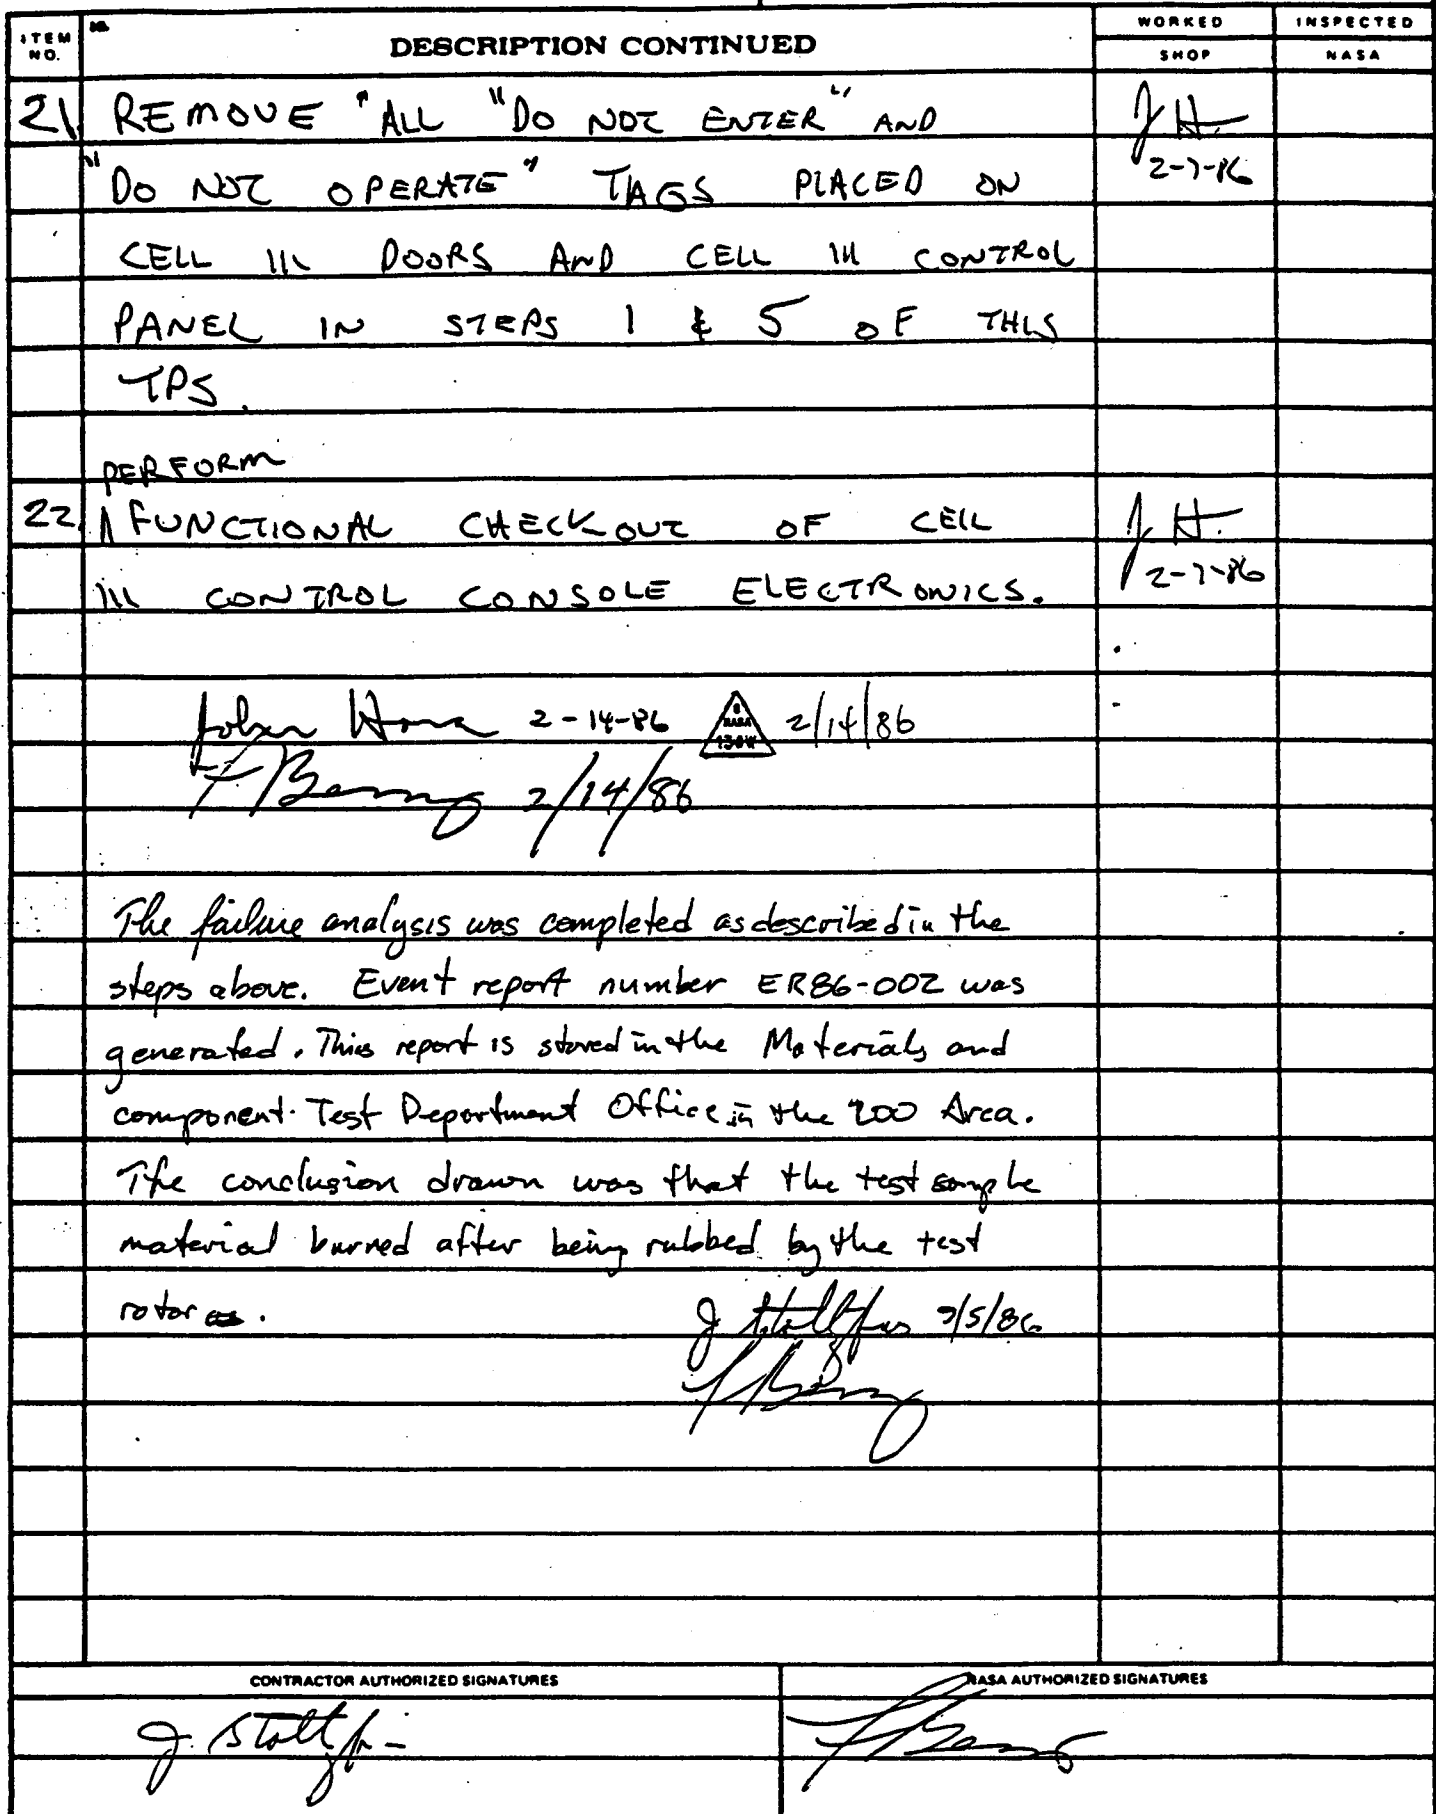 ITEM NO.
DESCRIPTION CONTINUED
WORKED
INSPECTED
SHOP
NASA
21 REMOVE "ALL "DO NOT ENTER" AND
J H.
"DO NOT OPERATE" TAGS PLACED ON
2-7-86
CELL III DOORS AND CELL III CONTROL
PANEL IN STEPS 1 & 5 OF THIS
TPS.
PERFORM
22 FUNCTIONAL CHECKOUT OF CELL
J. H.
III CONTROL CONSOLE ELECTRONICS.
2-7-86
2-14-86
NASA
2/14/86
2/14/86
The failure analysis was completed as described in the
steps above. Event report number ER86-002 was
generated. This report is stored in the Materials and
component Test Department Office in the 200 Area.
The conclusion drawn was that the test sample
material burned after being rubbed by the test
rotor.
J Stoltzfus
CONTRACTOR AUTHORIZED SIGNATURES
NASA AUTHORIZED SIGNATURES